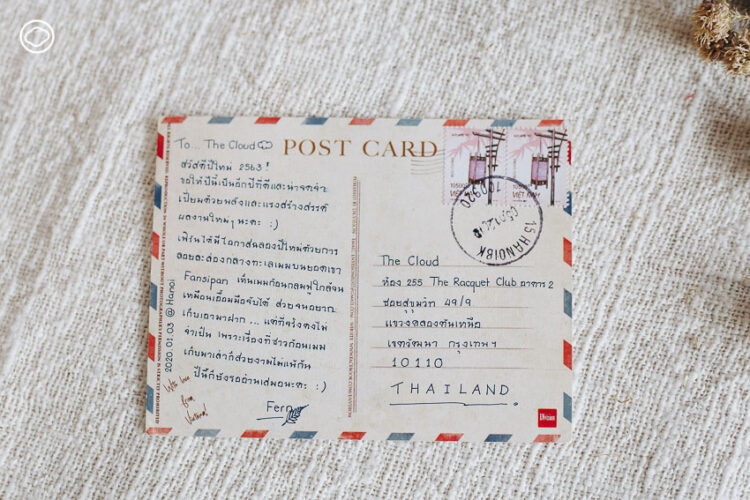 To... The Cloud
สวัสดีปีใหม่ 2563 !
ขอให้ปีนี้เป็นอีกปีที่ดีและน่าจดจำ
เปี่ยมด้วยพลังและแรงสร้างสรรค์
ผลงานใหม่ๆ นะคะ :)
เฟิร์นได้มีโอกาสฉลองปีใหม่ด้วยการ
ลอยละล่องกลางทะเลเมฆบนยอดเขา
Fansipan เห็นเมฆก้อนกลมฟูใกล้จน
เหมือนเอื้อมมือจับได้ สวยจนอยาก
เก็บเอามาฝาก ... แต่ที่จริงคงไม่
จำเป็น เพราะเรื่องที่ชาวก้อนเมฆ
เก็บมาเล่าก็สวยงามไม่แพ้กัน
ปีนี้ก็ยังรออ่านเสมอนะคะ :)
Fern
2020.01.03 @ Hanoi
With love
from
Vietnam!
POST CARD
VIET NAM
VIET NAM
15 HANOI BK
100920
The Cloud
ห้อง 255 The Racquet Club อาคาร 2
ซอยสุขุมวิท 49/9
แขวงคลองตันเหนือ
เขตวัฒนา กรุงเทพฯ
10110
THAILAND